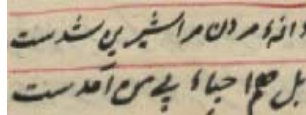 دانهٔ مردن مرا شیرین شدست
بل هم احیاء پی من آمدست